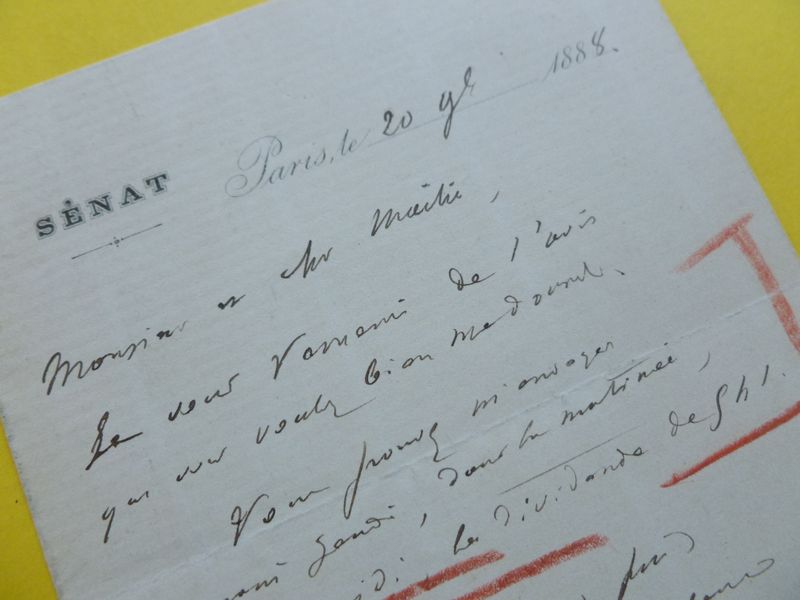 SÉNAT
Paris, le 20 9bre 1888.
Monsieur et cher Maître,
Je vous remercie de l'avis
que vous voulez bien me donner.
Vous pouvez m'envoyer
jeudi, dans la matinée,
le dividende de